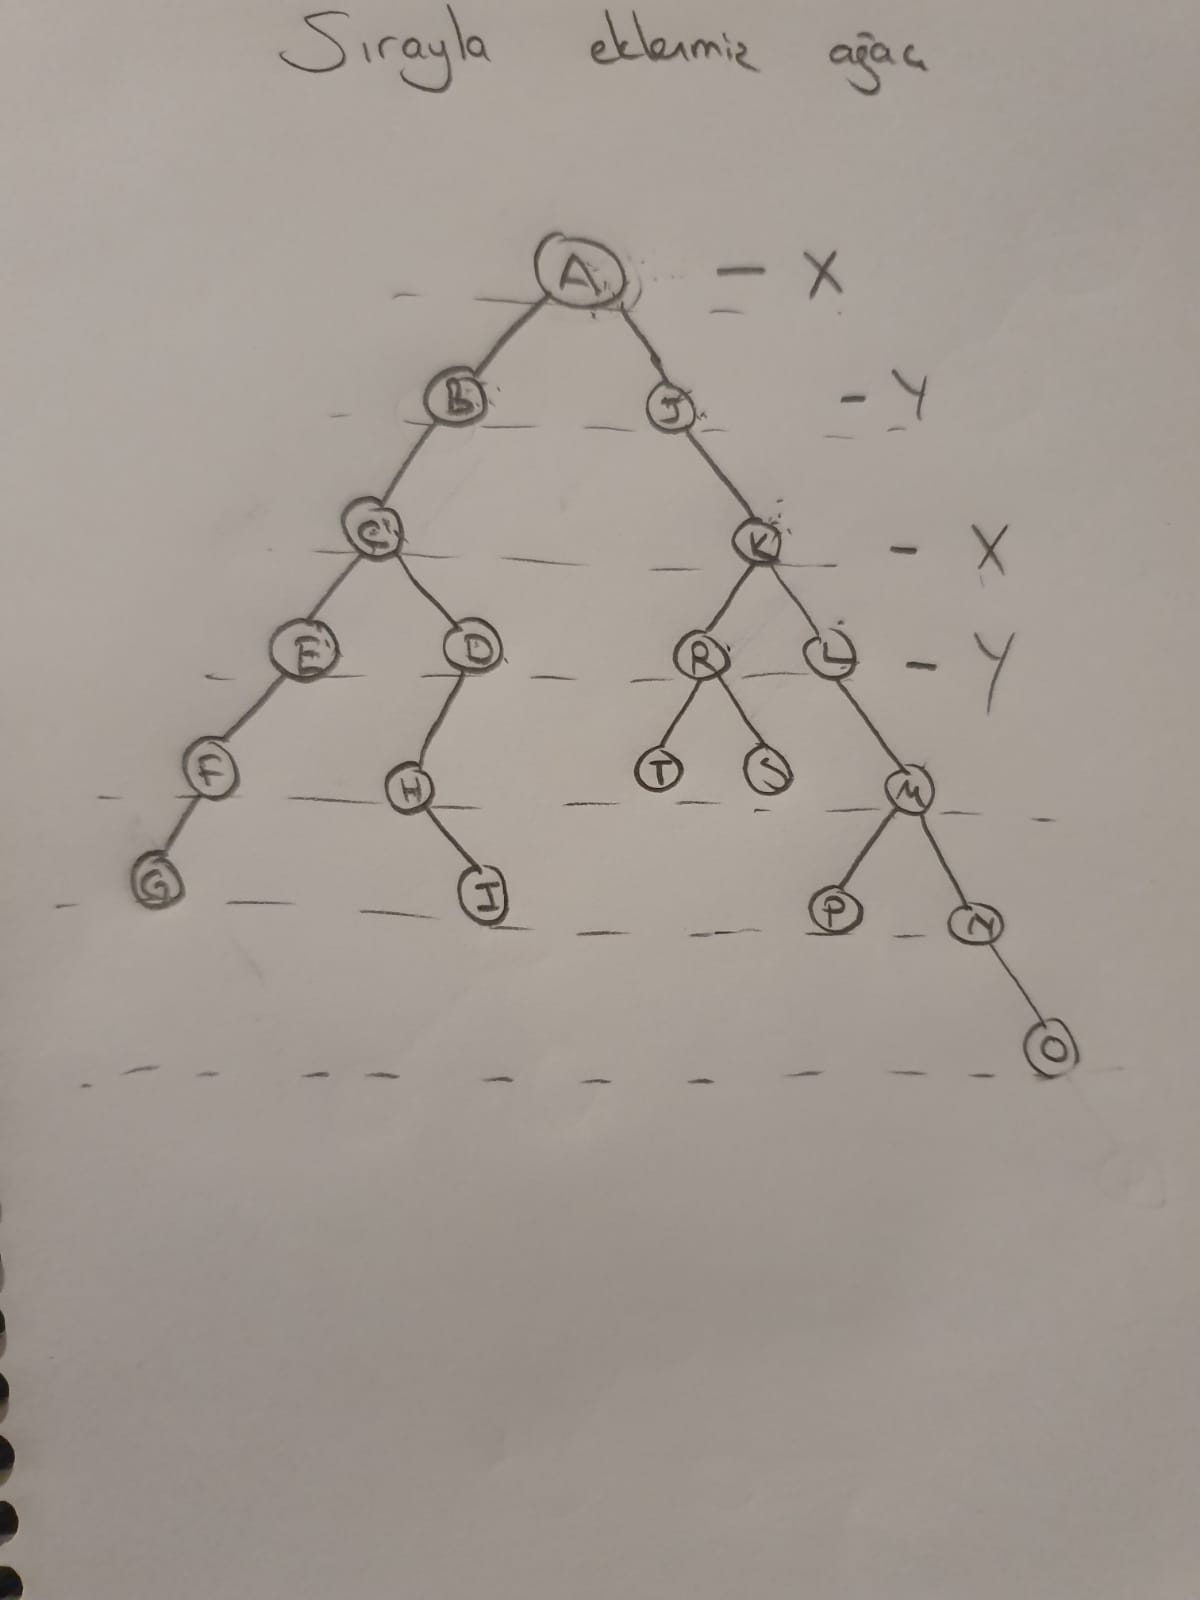 Sırayla eklenmiz ağacı
A - X
B J - Y
C K - X
E D R L - Y
F H T S M
G I P N
O